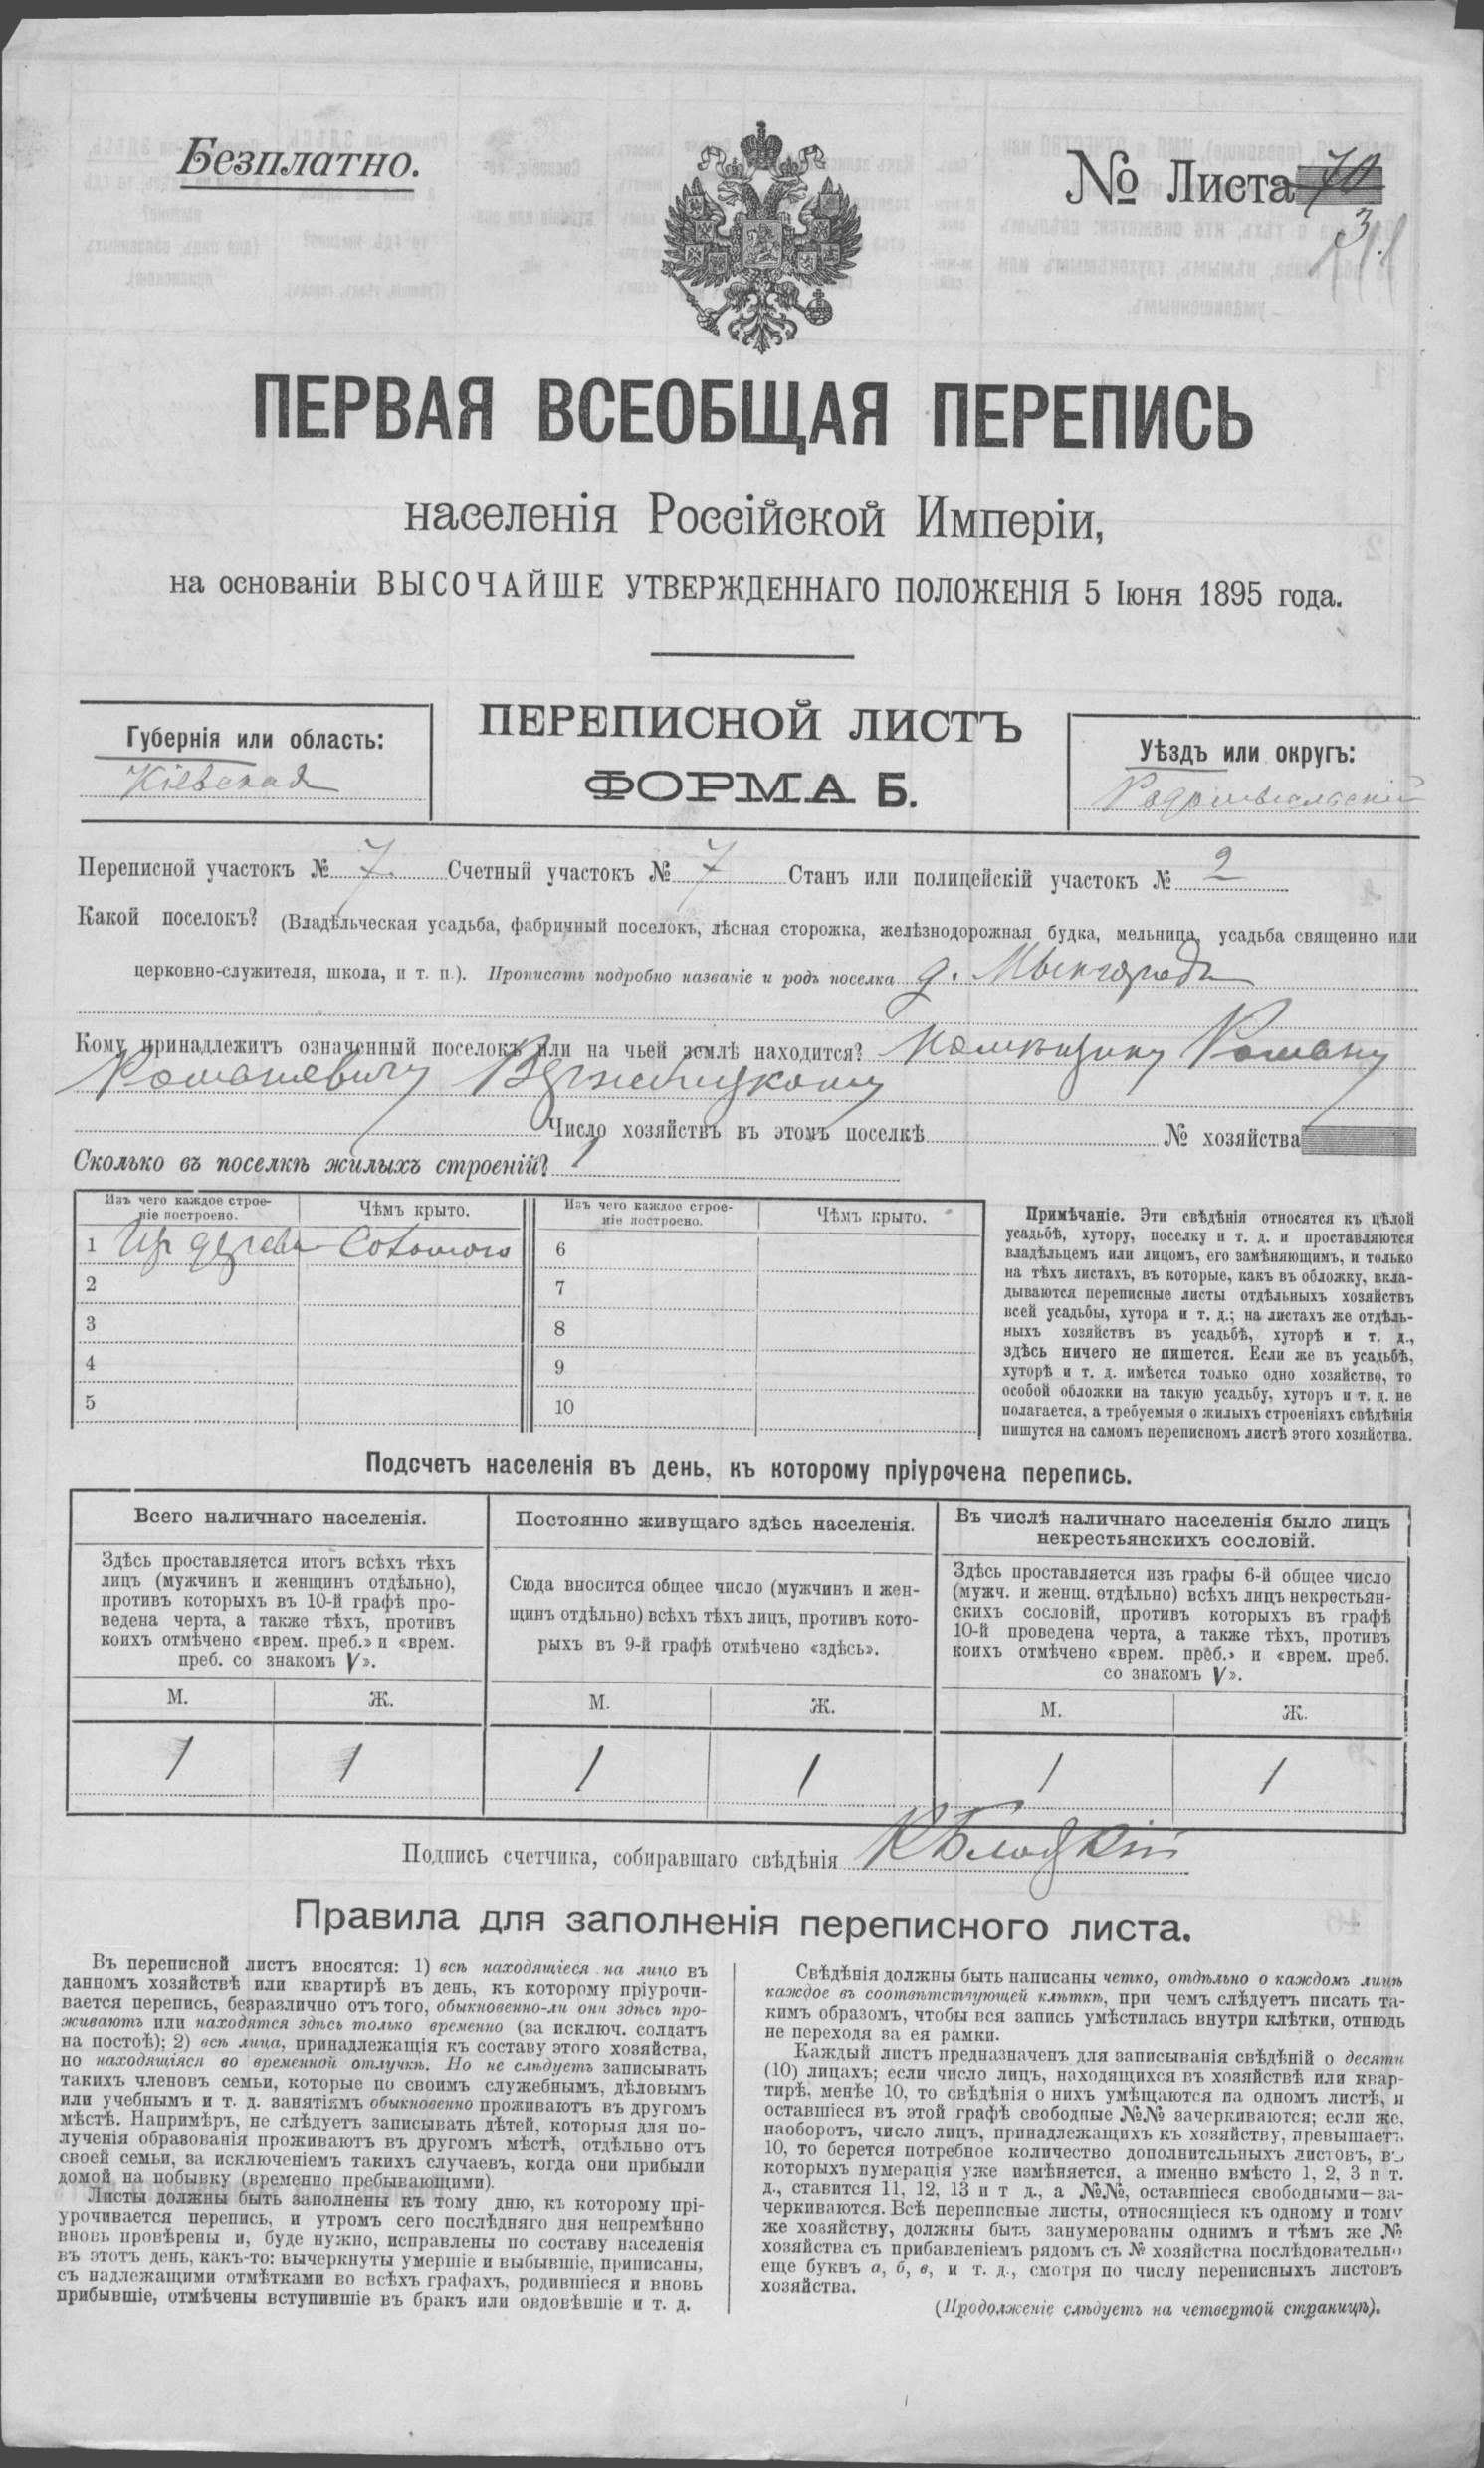 Безплатно.
№ Листа 70
3.
ПЕРВАЯ ВСЕОБЩАЯ ПЕРЕПИСЬ
населенія Россійской Имперіи,
на основаніи ВЫСОЧАЙШЕ УТВЕРЖДЕННАГО ПОЛОЖЕНІЯ 5 Іюня 1895 года.
Губернія или область:
Кіевская
ПЕРЕПИСНОЙ ЛИСТЪ
ФОРМА Б.
Уѣздъ или округъ:
Радомысльскій
Переписной участокъ № 7. Счетный участокъ № 7 Станъ или полицейскій участокъ № 2
Какой поселокъ? (Владѣльческая усадьба, фабричный поселокъ, лѣсная сторожка, желѣзнодорожная будка, мельница, усадьба священно или
церковно-служителя, школа, и т. п.). Прописать подробно названіе и родъ поселка д.
Кому принадлежитъ означенный поселокъ или на чьей землѣ находится? Помѣщику Роману
Романовичу
Число хозяйствъ въ этомъ поселкѣ № хозяйства
Сколько въ поселкѣ жилыхъ строеній? 1
Изъ чего каждое строеніе построено. Чѣмъ крыто. Изъ чего каждое строеніе построено. Чѣмъ крыто.
1 Изъ дерева Соломою 6
2 7
3 8
4 9
5 10
Примѣчаніе. Эти свѣдѣнія относятся къ цѣлой
усадьбѣ, хутору, поселку и т. д. и проставляются
владѣльцемъ или лицомъ, его замѣняющимъ, и только
на тѣхъ листахъ, въ которые, какъ въ обложку, вкла-
дываются переписные листы отдѣльныхъ хозяйствъ
всей усадьбы, хутора и т. д.; на листахъ же отдѣль-
ныхъ хозяйствъ въ усадьбѣ, хуторѣ и т. д.,
здѣсь ничего не пишется. Если же въ усадьбѣ,
хуторѣ и т. д. имѣется только одно хозяйство, то
особой обложки на такую усадьбу, хуторъ и т. д. не
полагается, а требуемыя о жилыхъ строеніяхъ свѣдѣнія
пишутся на самомъ переписномъ листѣ этого хозяйства.
Подсчетъ населенія въ день, къ которому пріурочена перепись.
Всего наличнаго населенія.
Здѣсь проставляется итогъ всѣхъ тѣхъ
лицъ (мужчинъ и женщинъ отдѣльно),
противъ которыхъ въ 10-й графѣ про-
ведена черта, а также тѣхъ, противъ
коихъ отмѣчено «врем. преб.» и «врем.
преб. со знакомъ V».
Постоянно живущаго здѣсь населенія.
Сюда вносится общее число (мужчинъ и жен-
щинъ отдѣльно) всѣхъ тѣхъ лицъ, противъ кото-
рыхъ въ 9-й графѣ отмѣчено «здѣсь».
Въ числѣ наличнаго населенія было лицъ
некрестьянскихъ сословій.
Здѣсь проставляется изъ графы 6-й общее число
(мужч. и женщ. отдѣльно) всѣхъ лицъ некрестьян-
скихъ сословій, противъ которыхъ въ графѣ
10-й проведена черта, а также тѣхъ, противъ
коихъ отмѣчено «врем. преб.» и «врем. преб.
со знакомъ V».
М. Ж. М. Ж. М. Ж.
1 1 1 1 1 1
Подпись счетчика, собиравшаго свѣдѣнія
Правила для заполненія переписного листа.
Въ переписной листъ вносятся: 1) всѣ находящіеся на лицо въ
данномъ хозяйствѣ или квартирѣ въ день, къ которому пріурочи-
вается перепись, безразлично отъ того, обыкновенно-ли они здѣсь про-
живаютъ или находятся здѣсь только временно (за исключ. солдатъ
на постоѣ); 2) всѣ лица, принадлежащія къ составу этого хозяйства,
но находящіяся во временной отлучкѣ. Но не слѣдуетъ записывать
такихъ членовъ семьи, которые по своимъ служебнымъ, дѣловымъ
или учебнымъ и т. д. занятіямъ обыкновенно проживаютъ въ другомъ
мѣстѣ. Напримѣръ, не слѣдуетъ записывать дѣтей, которыя для по-
лученія образованія проживаютъ въ другомъ мѣстѣ, отдѣльно отъ
своей семьи, за исключеніемъ такихъ случаевъ, когда они прибыли
домой на побывку (временно пребывающими).
Листы должны быть заполнены къ тому дню, къ которому прі-
урочивается перепись, и утромъ сего послѣдняго дня непремѣнно
вновь провѣрены и, буде нужно, исправлены по составу населенія
въ этотъ день, какъ-то: вычеркнуты умершіе и выбывшіе, приписаны,
съ надлежащими отмѣтками во всѣхъ графахъ, родившіеся и вновь
прибывшіе, отмѣчены вступившіе въ бракъ или овдовѣвшіе и т. д.
Свѣдѣнія должны быть написаны четко, отдѣльно о каждомъ лицѣ
каждое въ соотвѣтствующей клѣткѣ, при чемъ слѣдуетъ писать та-
кимъ образомъ, чтобы вся запись умѣстилась внутри клѣтки, отнюдь
не переходя за ея рамки.
Каждый листъ предназначенъ для записыванія свѣдѣній о десяти
(10) лицахъ; если число лицъ, находящихся въ хозяйствѣ или квар-
тирѣ, менѣе 10, то свѣдѣнія о нихъ умѣщаются на одномъ листѣ, и
оставшіеся въ этой графѣ свободные №№ зачеркиваются; если же,
наоборотъ, число лицъ, принадлежащихъ къ хозяйству, превышаетъ
10, то берется потребное количество дополнительныхъ листовъ, въ
которыхъ нумерація уже измѣняется, а именно вмѣсто 1, 2, 3 и т.
д., ставится 11, 12, 13 и т д., а №№, оставшіеся свободными—за-
черкиваются. Всѣ переписные листы, относящіеся къ одному и тому
же хозяйству, должны быть занумерованы однимъ и тѣмъ же №
хозяйства съ прибавленіемъ рядомъ съ № хозяйства послѣдовательно
еще буквъ а, б, в, и т. д., смотря по числу переписныхъ листовъ
хозяйства.
(Продолженіе слѣдуетъ на четвертой страницѣ).